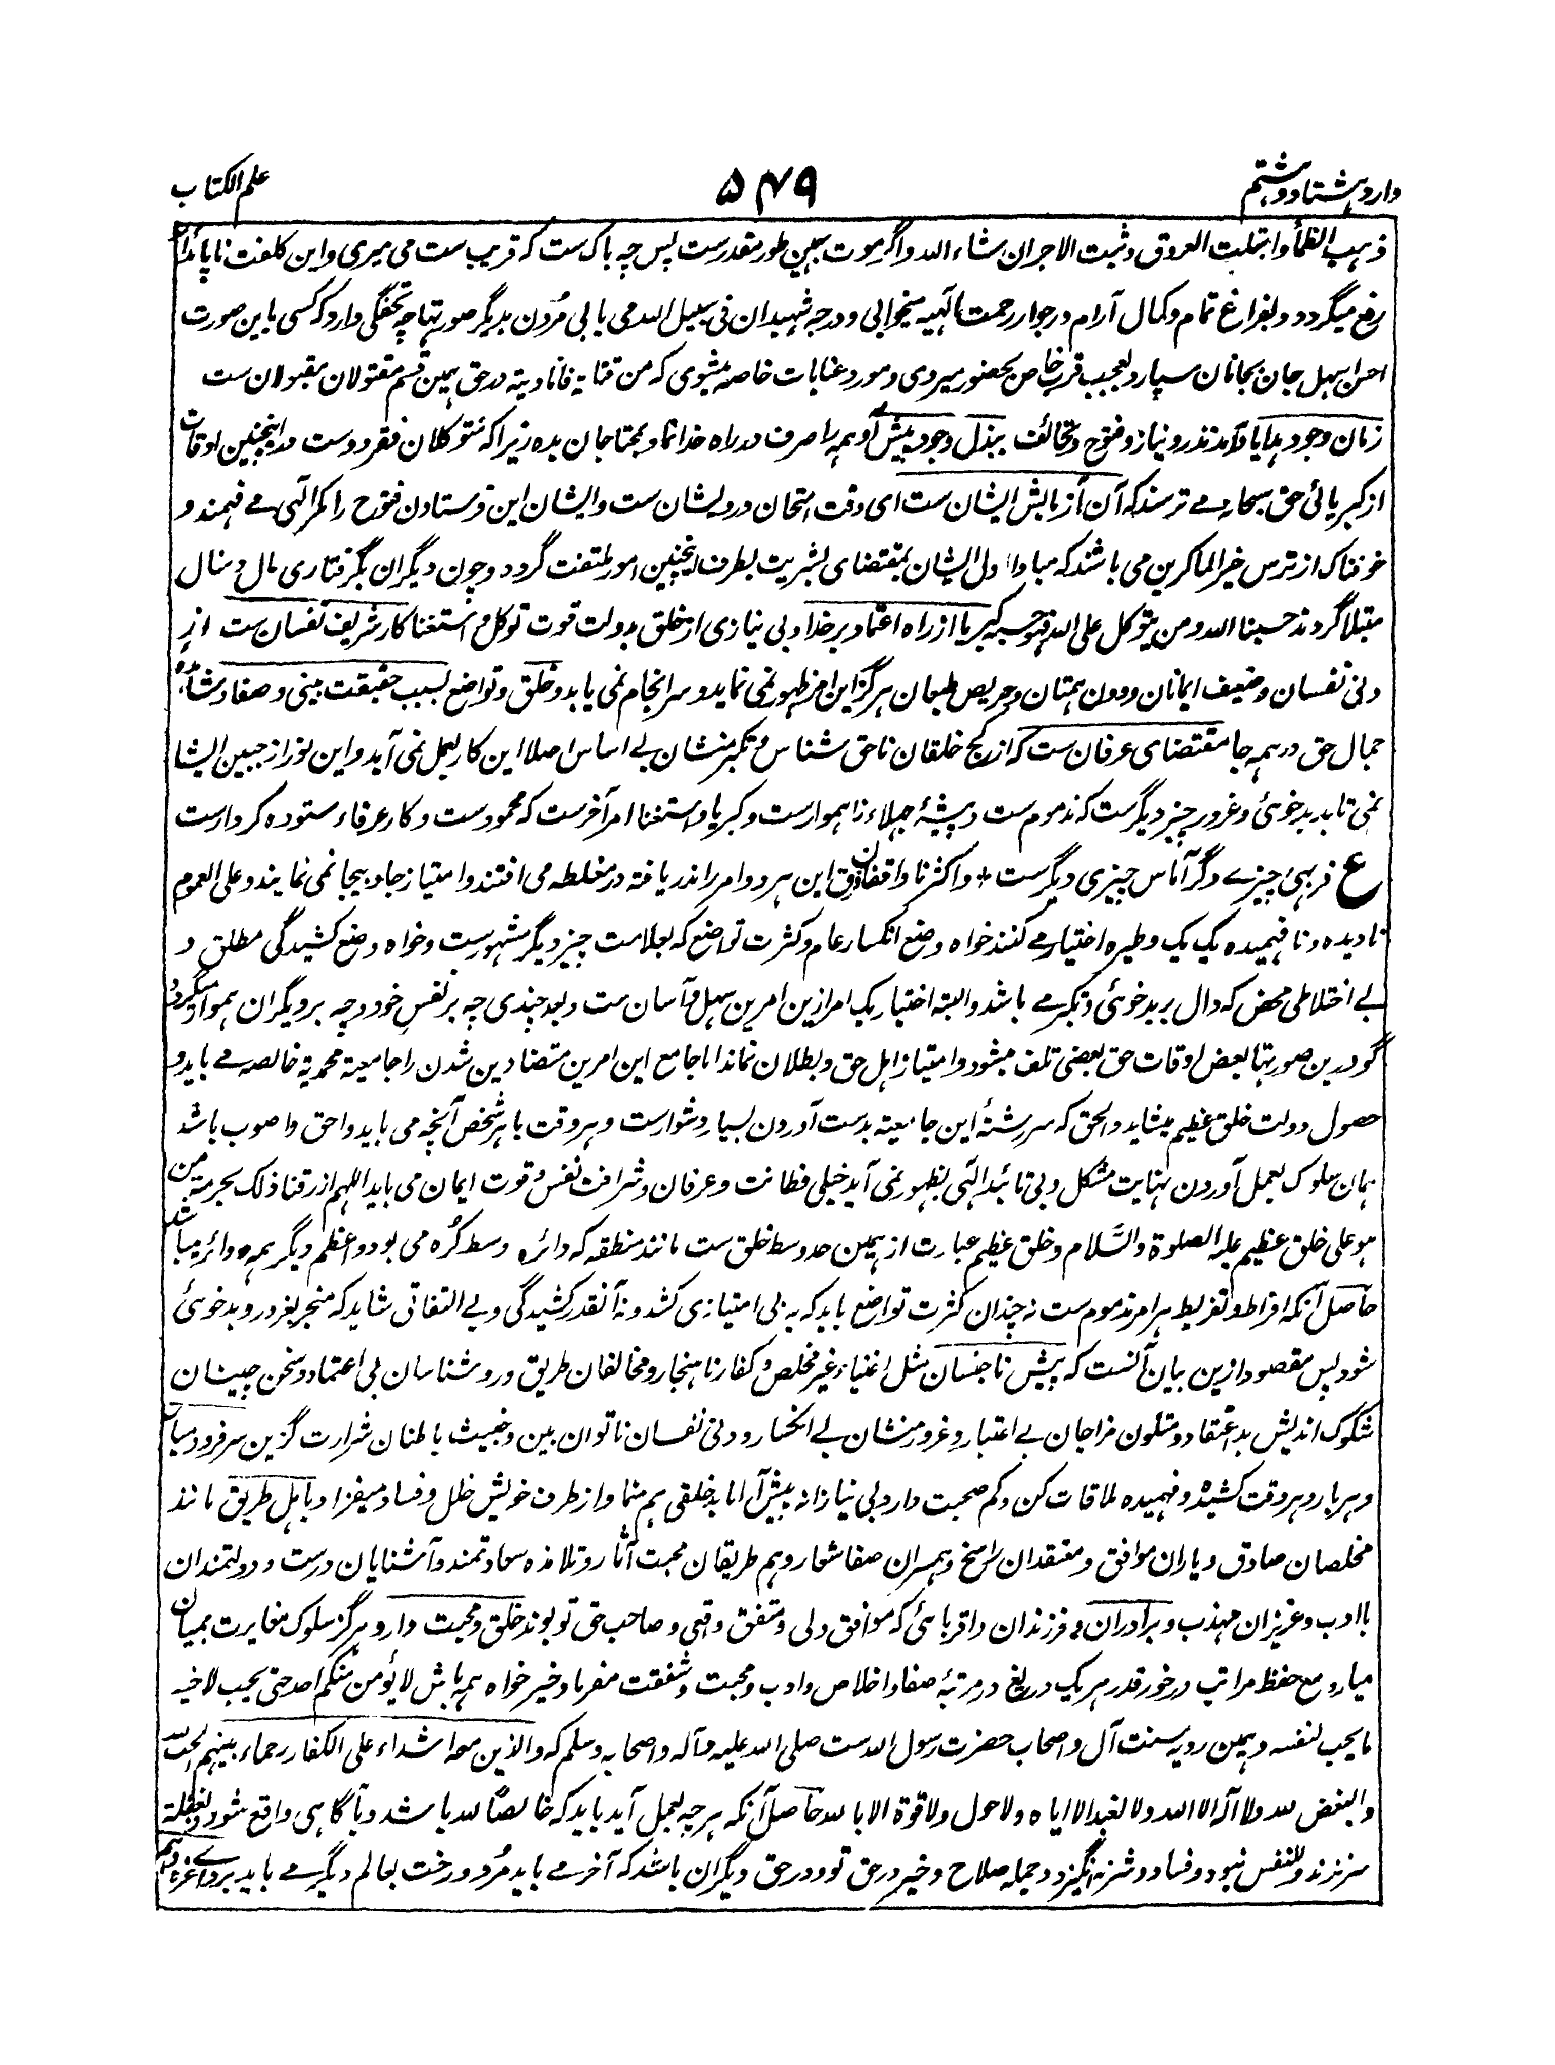 وارد هشتاد و هشتم
۵۴۹
علم الکتاب
ذهب الظمأ وابتلت العروق وثبت الاجر ان شاء الله واگر موت بهمین طور مقدرست پس چه باک ست که قریب ست می میری و این کلفت ناپائدار
رفع میگردد و بفراغ تمام و کمال آرام در جوار رحمت الٓهیه میخوابی و درجه شهیدان فی سبیل الله می یابی مُردن بدیگر صورتها چه تحفگی دارد کسی باین صورت
احسن اسهل جان بجانان سپارد بعجب قرب خاص بحضور میروی و مورد عنایات خاصه میشوی که من قتلته فانا دیته در حق همین قسم مقتولان مقبولان ست
زمان وجود هدایا و آمد نذر و نیاز و فتوح و تحائف ببذل وجود پیش آ و همه را صرف در راه خدا نما و بمحتاجان بده زیرا که متوکلان فقر دوست در اینچنین اوقات
از کبریائی حق سبحانه مے ترسند که آن آزمایش ایشان ست ای وقت امتحان درویشان ست و ایشان این فرستادن فتوح را مکر الٓهی مے فهمند و
خوفناک از ترس خیر الماکرین می باشند که مبادا دل ایشان بمقتضای بشریت بطرف اینچنین امور ملتفت گردد و چون دیگران بگرفتاری مال و منال
مبتلا گردند حسبنا الله ومن یتوکل علی الله فهو حسبه کبریا از راه اعتماد بر خدا و بی نیازی از خلق بدولت قوت توکل و استغنا کار شریف نفسان ست از
دنی نفسان و ضعیف ایمانان و دون همتان و حریص طبعان هرگز این امر ظهور نمی نماید و سرانجام نمی یابد و خلق و تواضع بسبب حقیقت بینی و صفا و مشاهده
جمال حق در همه جا مقتضای عرفان ست که از کج خلقان ناحق شناس و تکبر منشان بے اساس اصلا این کار بعمل نمی آید و این نور از جبین ایشا
نمی تابد بد خوئی و غرور چیز دیگر ست که مذموم ست و پیشۀ جهلاء ناهموار ست و کبریا و استغنا امر آخر ست که محمود ست و کار عرفاء ستوده کردار ست
ع فربهی چیزے دگر آماس چیزی دیگر ست + و اکثر ناواقفان فرق این هر دو امر را ندریافته در مغلطه می افتند و امتیاز جا و بیجا نمی نمایند و علی العموم
نادیده و نافهمیده یک یک وطیره اختیار مے کنند خواه وضع انکسار عام و کثرت تواضع که بعلامت چیز دیگر مشهور ست و خواه وضع کشیدگی مطلق و
بے اختلاطی محض که دال بر بد خوئی و تکبر مے باشد و البته اختیار یک امر ازین امرین سهل و آسان ست و بعد چندی چه بر نفس خود و چه بر دیگران هموار میگردد
گو درین صورتها بعض اوقات حق بعضی تلف میشود و امتیاز اهل حق و بطلان نماند اما جامع این امرین متضادین شدن را جامعیة محمدیة خالصه مے باید و
حصول دولت خلق عظیم میشاید و الحق که سررشتۀ این جامعیة بدست آوردن بسیار دشوار ست و هر وقت با هر شخص آنچه می باید و احق و اصوب باشد
همان سلوک بعمل آوردن نهایت مشکل و بی تائید الٓهی بظهور نمی آید خیلی فطانت و عرفان و شرافت نفس و قوت ایمان می باید اللهم ارزقنا ذلک بحرمت من
هو علی خلق عظیم علیه الصلوة والسَّلام و خلق عظیم عبارت از همین حد وسط خلق ست مانند منطقه که دائره وسط کُره می بود و اعظم دیگر همه دائره میباشد
حاصل آنکه افراط و تفریط هر امر مذموم ست نه چندان کثرت تواضع باید که به بی امتیازی کشد و نه آنقدر کشیدگی و بے التفاتی شاید که منجر بغرور و بد خوئی
شود پس مقصود ازین بیان آنست که پیش ناجنسان مثل اغنیاء غیر مخلص و کفار ناهنجار و مخالفان طریق و روشناسان بی اعتماد و سخن چینان
شکوک اندیش بد اعتقاد و متلون مزاجان بے اعتبار و غرور منشان بے انکسار و دنی نفسان ناتوان بین و خبیث باطنان شرارت گزین سر فرود میار
و هر بار و هر وقت کشیده و فهمیده ملاقات کن و کم صحبت دار و بی نیازانه پیش آ اما بد خلقی هم منما و از طرف خویش خلل و فساد میفزا و باهل طریق مانند
مخلصان صادق و یاران موافق و معتقدان راسخ و همسران صفا شعار و هم طریقان محبت آثار و تلامذه سعادتمند و آشنایان درست و دولتمندان
با ادب و عزیزان مهذب و برادران و فرزندان و اقربائی که موافق دلی و متفق وقتی و صاحب حق تو بوند خلق و محبت دار و هرگز سلوک مغایرت بمیان
میار و مع حفظ مراتب در خور قدر هر یک دریغ در مرتبۀ صفا و اخلاص و ادب و محبت و شفقت مفرما و خیر خواه همه باش لا یؤمن منکم احد حتی یحب لاخیه
ما یحب لنفسه و همین رویه سنت آل و اصحاب حضرت رسول الله ست صلی الله علیه و آله و اصحابه و سلم که والذین معه اشداء علی الکفار رحماء بینهم الحب لله
والبغض لله ولا اله الا الله ولا نعبد الا ایاه ولا حول ولا قوة الا بالله حاصل آنکه هر چه بعمل آید باید که خالصًا لله باشد و بآگاهی واقع شود و بغفلة
سر نزند و للنفس نبود و فساد و شر نه انگیزد و جمله صلاح و خیر در حق تو و در حق دیگران باشد که آخر مے باید مُرد و رخت بعالم دیگر مے باید برد